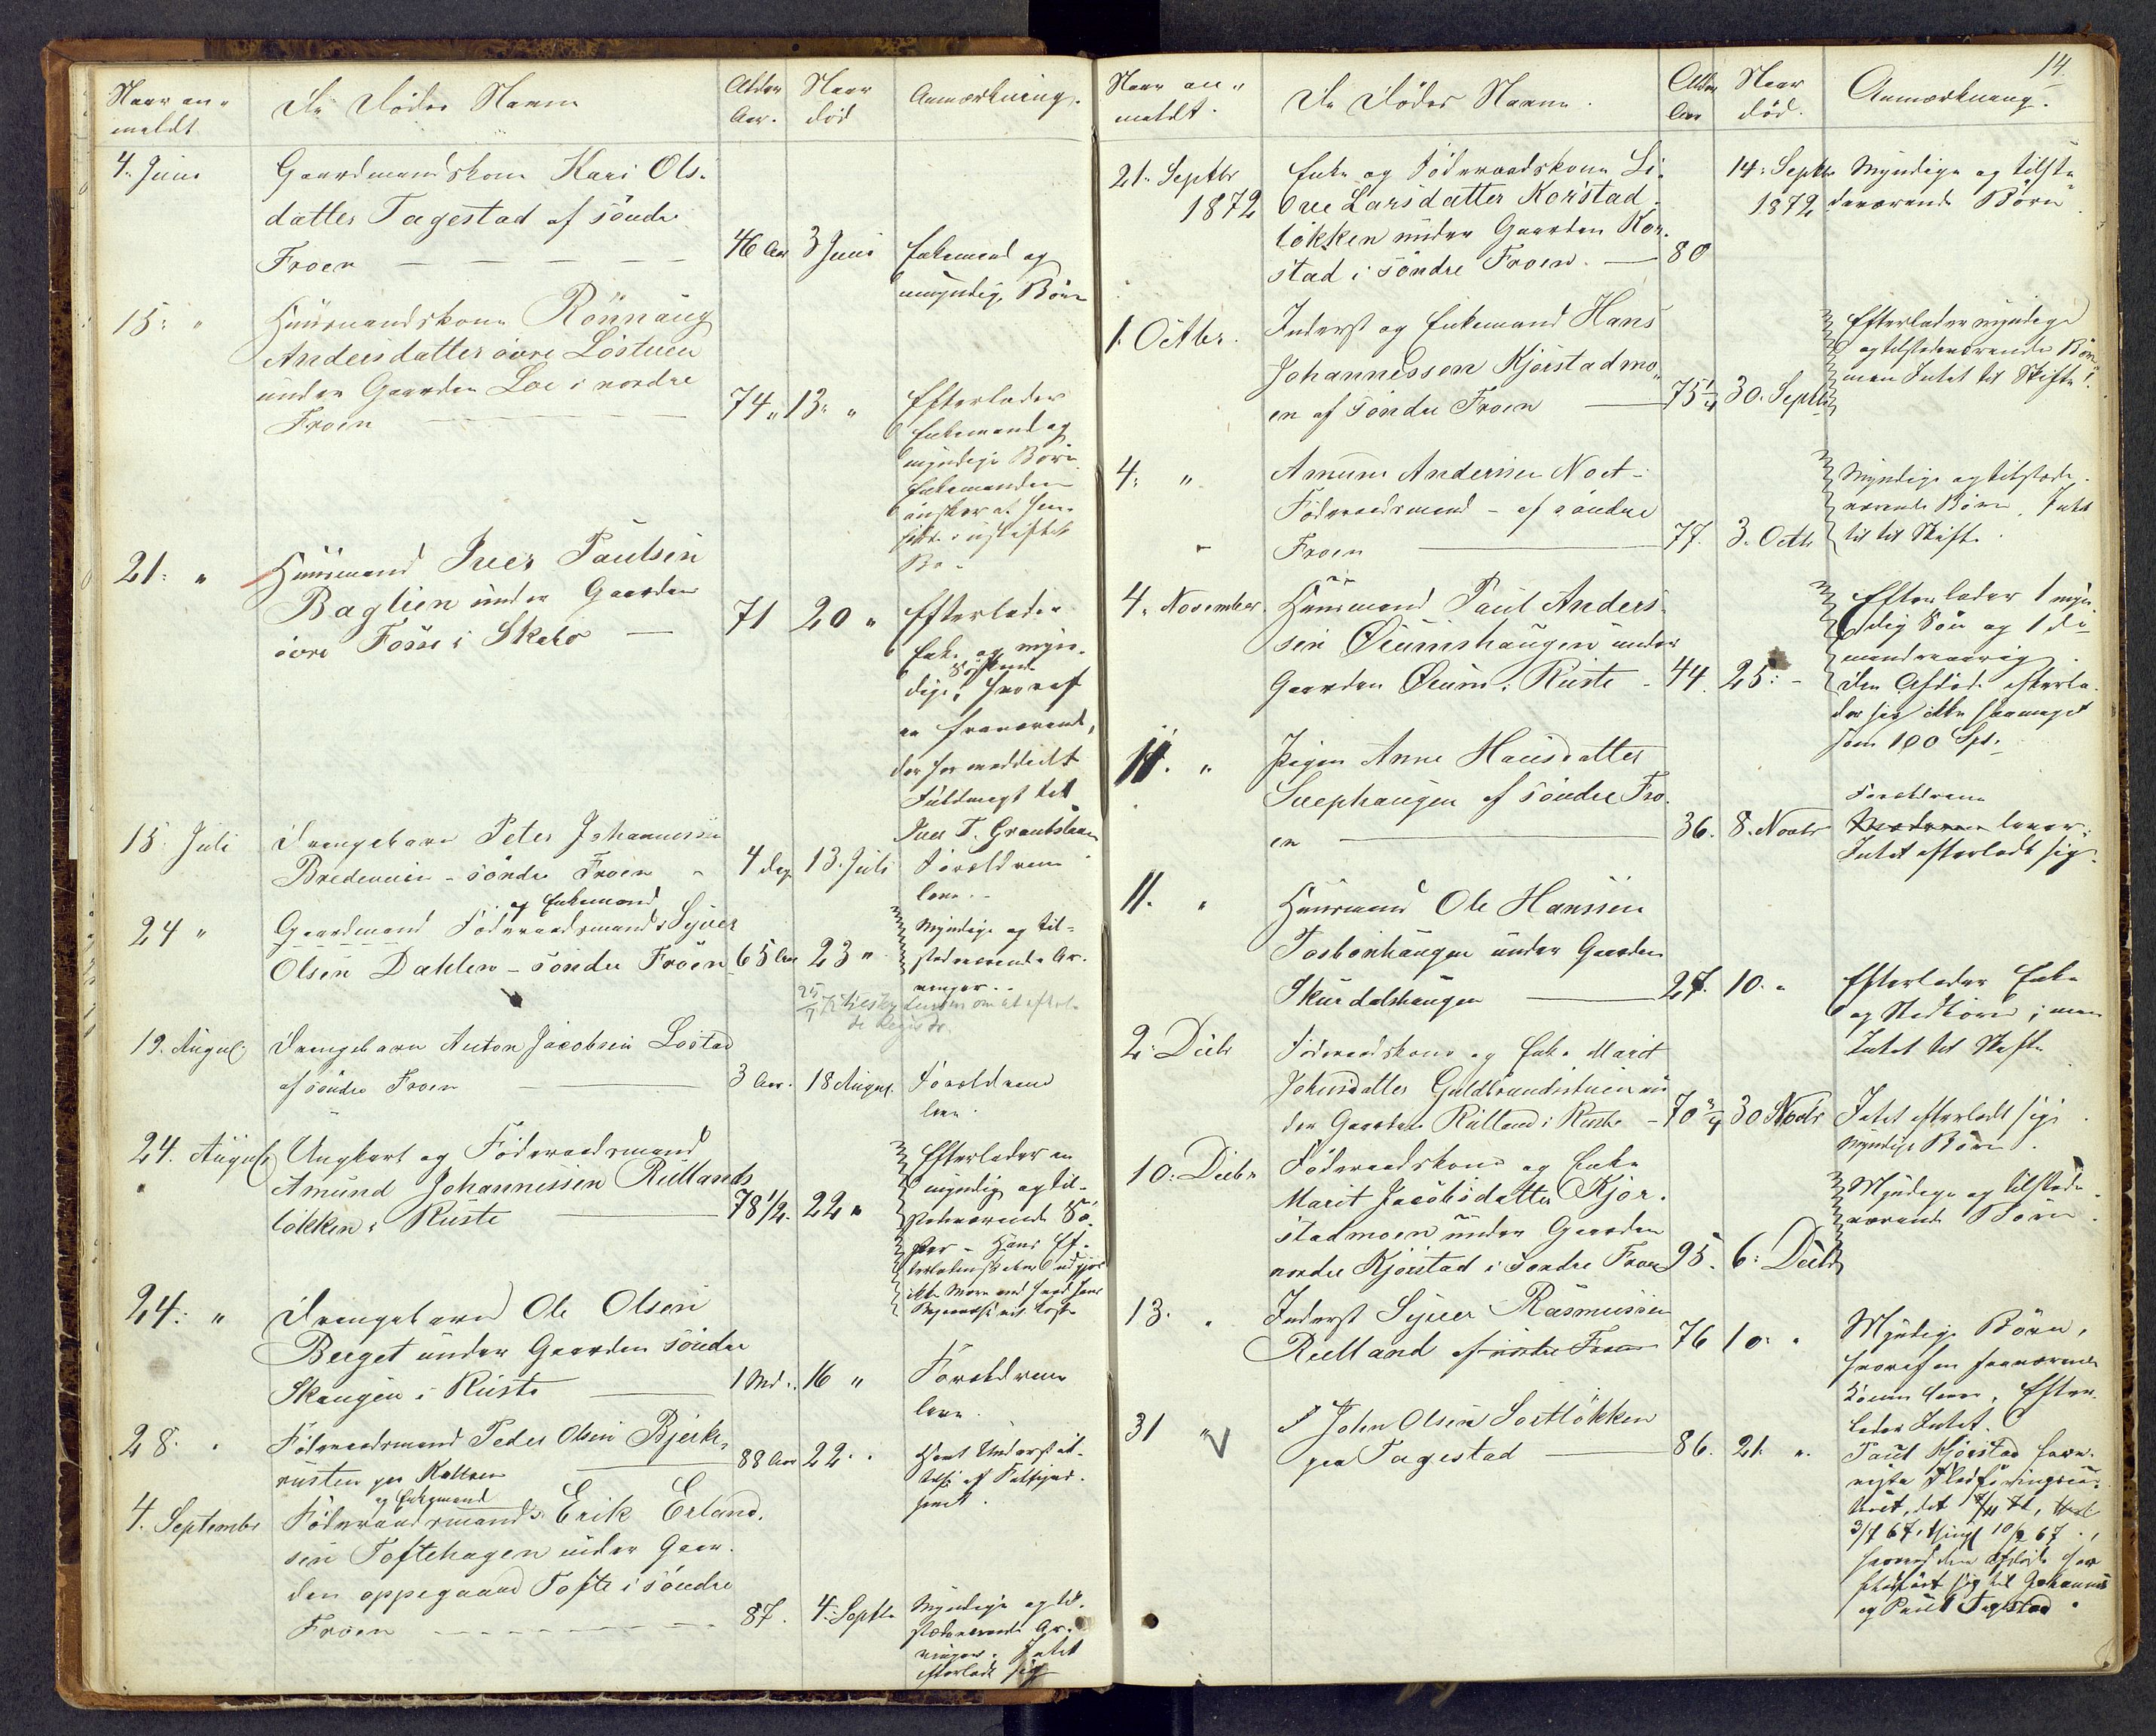 Naar an-
meldt
De Dødes Navne
Alder
Aar.
Naar
død
Anmærkning.
4. Juni
Gaardmandskone Kari Ols-
datter Tagestad af søndre
Froen
46 Aar
3 Juni
Enkemand og
umyndige Børn
15. "
Huusmandskone Rönnaug
Andersdatter övre Löstuen
under Gaarden Loe i nordre
Froen
74 "
13. "
Efterlader
Enkemand og
myndige Børn
Enkemanden
ønsker at hen-
sidde i uskiftet
Bo.
21. "
Huusmand Iver Paulsen
Baglien under Gaarden
övre Fosse i Skabo
71
20 "
Efterlader
Enke og myn-
dige Søskende
hvoraf
en fraværende,
der har meddelt
Fuldmagt til
Iver T. Graubsleen
15. Juli
Drengebarn Peter Johannessen
Bredeveien - söndre Froen
4 Dag
13. Juli
Forældrene
leve.
24 "
Gaardmand Föderaadsmand og Enkemand Syver
Olsen Dahlen - söndre Froen
65 Aar
23 "
Myndige og til-
stedeværende Ar-
vinger.
19. August
Drengebarn Anton Jacobsen Löstad
af söndre Froen
3 Aar.
18 August
Forældrene
leve.
24. August
Ungkarl og Föderaadsmand
Amund Johannessen Rulland-
lökken i Ruste
78 1/2.
22 "
Efterlader en
myndig og til-
stedeværende Sö-
ster - Hans Ef-
terladenskaber udgjør
ikke mere end hvad hans
Begravelse vil koste
24. "
Drengebarn Ole Olsen
Berget under Gaarden söndre
Skaugen i Ruste
1 Md.
16 "
Forældrene
leve.
28. "
Föderaadsmand Peder Olsen Bjerke-
rusten
88 Aar
22. "
Havt Understöt-
telse af Fattigvæ-
senet.
4. Septembr
Föderaadsmand og Enkemand Erik Erland-
sen Toftehagen under Gaar-
den oppegaard Tofte i söndre
Froen
87.
4. Septbr
Myndige og til-
stedeværende Ar-
vinger. Intet
efterladt sig
14.
Naar an-
meldt.
De Dødes Navne.
Alder
Aar
Naar
død.
Anmærkning.
21. Septbr
1872
Enke og Föderaadskone Li-
Larsdatter Korstad-
lökken under Gaarden Kor-
stad i söndre Froen.
80
14. Septbr
1872
Myndige og tilste-
deværende Børn
1. Octbr.
Inderst og Enkemand Hans
Johannessen Kjörstadmo-
en af söndre Froen
75 1/4
30. Septbr
Efterlader myndige
og tilstedeværende Børn
men Intet til Skifte.
4. "
Amund Andersen Noet-
Föderaadsmand - af söndre
Froen
77.
3. Octbr
Myndige og tilstede-
værende Børn. Intet
til Skifte.
4. November.
Huusmand Paul Anders-
sen Öiumshaugen under
Gaarden Öium i Ruste
44.
25. -
Efterlader 1 myn-
dig Sön og 1 do
mindreaarig.
Den Afdöde efterla-
der sig ikke saameget
som 100 Spd.
11. "
Pigen Anne Hansdatter
Svephaugen af söndre Fro-
en
36.
8. Novbr
Forældrene
Moderen lever.
Intet efterladt sig.
11. "
Huusmand Ole Hanssen
Torbönhaugen under Gaarden
Skurdalshaugen
27.
10. "
Efterlader Enke
og Stedbörn; men
Intet til Skifte
2. Decbr
Föderaadskone og Enke Marit
Johnsdatter Guldbrandsstuen un-
der Gaarden Rulland i Ruste
70 3/4
30 Novbr
Intet efterladt sig.
Myndige Børn.
10. Decbr
Föderaadskone og Enke
Marit Jacobsdatter Kjör-
stadmoen under Gaarden
nordre Kjörstad i söndre Froen
95.
6. Decbr
Myndige og tilstede-
værende Børn.
13. "
Inderst Syver Rasmussen
Rulland af nordre Froen
76
10. "
Myndige Børn,
hvoraf en fraværende
Efter-
lader Intet.
31 "
John Olsen Sortlökken
paa Tagestad
86.
21. "
Paul Kjörstad
3/7 67, thingl 10/8 67.
hvorved den Afdöde har
sig til Johannes
og Paul Tagestad.